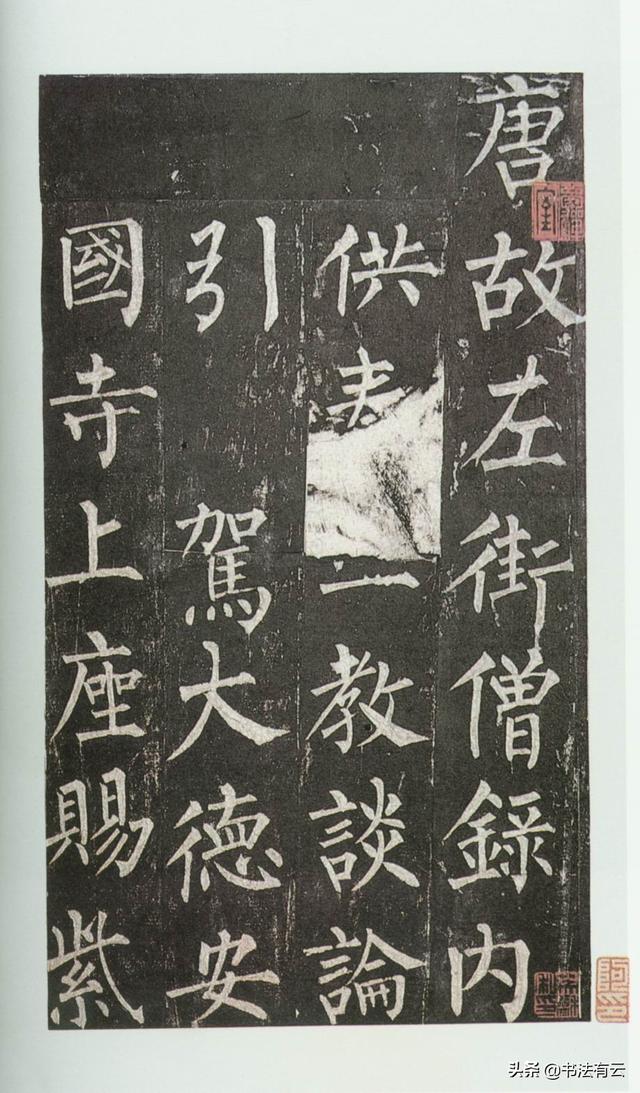 唐故左街僧錄内
供教談論
引駕大德安
國寺上座賜紫
头条 @书法有云